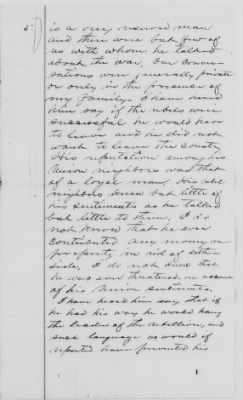 is a very reserved man
and there were but few of
us with whom he talked
about the war. Our conver-
sations were generally private
or only in the presence of
my family. I have heard
him say if the rebels were
successful he would have
to leave and he did not
want to leave the county
His reputation among his
Union neighbors was that
of a loyal man. His
neighbors knew but little of
his sentiments as he talked
but little to them. I do
not know that he ever
contributed any money or
property in aid of either
side. I do not know that
he was ever threatened on account
of his Union sentiments.
I have heard him say that if
he had his way he would hang
the leaders of the rebellion, and
such language as would if
reported have prevented his